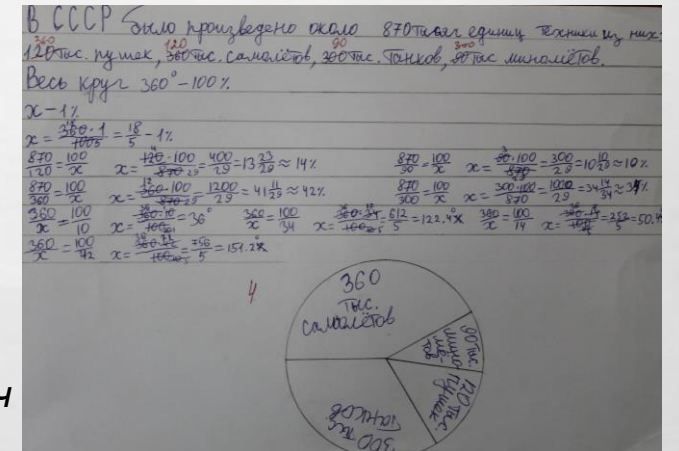 В СССР было произведено около 870 тысяч единиц техники из них:
360 120 90 300
120 тис. пушек, 360 тис. самолётов, 300 тис. танков, 90 тис миномётов.
Весь круг 360° – 100%
x – 1%
x = 360·1/1005 = 18/5 – 1%
870/120 = 100/x x = 120·100/870 29 = 400/29 = 13 23/29 ≈ 14% 870/90 = 100/x x = 90·100/870 = 300/29 = 10 10/29 ≈ 10%
870/360 = 100/x x = 360·100/870 29 = 1200/29 = 41 11/29 ≈ 42% 870/300 = 100/x x = 300·100/870 = 1000/29 = 34 14/34 ≈ 34%
360/x = 100/10 x = 360·10/100 = 36° 360/x = 100/34 x = 360·34/100 5 = 612/5 = 122.4° 360/x = 100/14 x = 360·14/100 = 252/5 = 50.4°
360/x = 100/42 x = 360·42/100 5 = 756/5 = 151.2°
4
360
тыс.
самолётов
90 тыс.
мино
мё-
тов
120 тыс
пушек
300 тыс
танков
ч